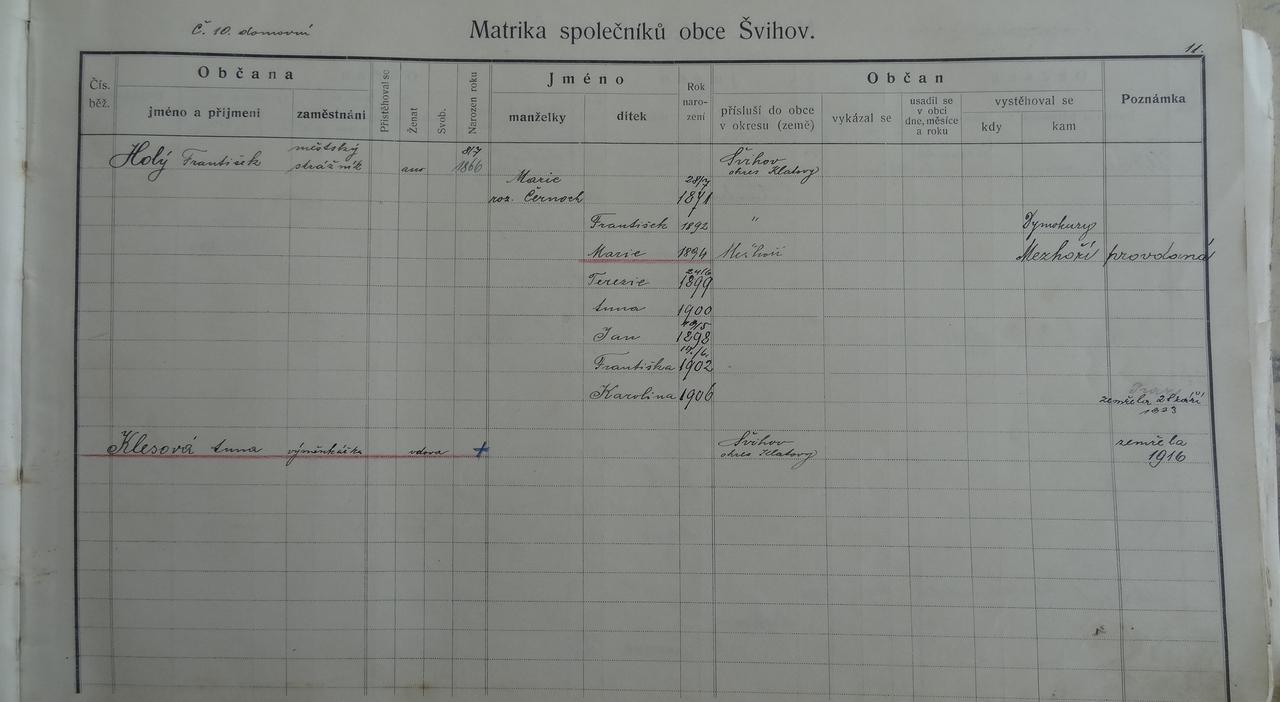 Č. 10. domovní
Matrika společníků obce Švihov.
11.
Čís. běž.
Občana
jméno a příjmení
zaměstnání
Přistěhoval se
Ženat
Svob.
Narozen roku
Jméno
manželky
dítek
Rok naro- zení
Občan
přísluší do obce v okresu (země)
vykázal se
usadil se v obci dne, měsíce a roku
vystěhoval se
kdy
kam
Poznámka
Holý František městský strážník ano 8/7 1866 Švihov okres Klatovy
Marie roz. Černoch 28/7 1871
František 1892 " Dymokury
Marie 1894 Mezhoří Mezhoří provdaná
Terezie 24/6 1899
Anna 1900
Jan 1898
Františka 1902
Karolina 1906 zemřela 28 září 1923
Klesová Anna výměnkářka vdova + Švihov okres Klatovy zemřela 1916